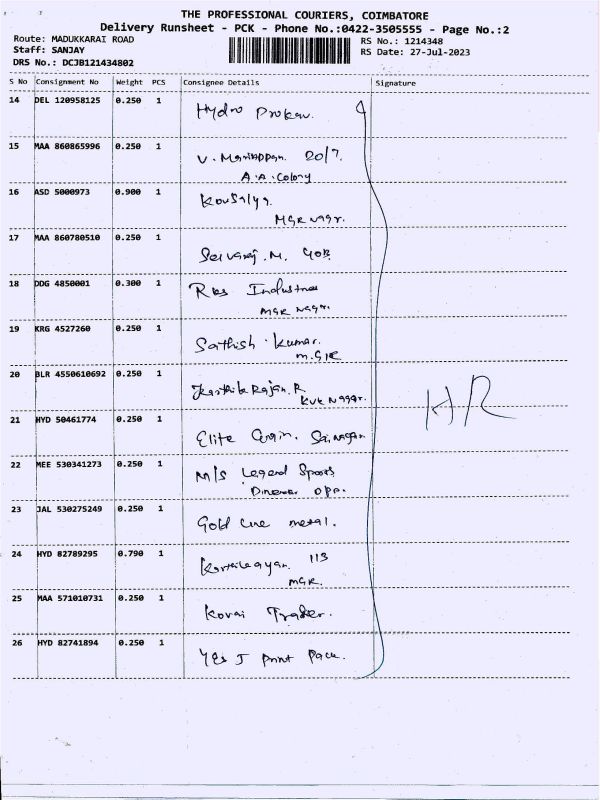 THE PROFESSIONAL COURIERS, COIMBATORE
Delivery Runsheet - PCK - Phone No.:0422-3505555 - Page No.:2
Route: MADUKKARAI ROAD
RS No.: 1214348
Staff: SANJAY
RS Date: 27-Jul-2023
DRS No.: DCJB121434802
S No Consignment No Weight PCS Consignee Details Signature
14 DEL 120958125 0.250 1
Hydro
15 MAA 860865996 0.250 1
V. 20/7
A.A. Colony
16 ASD 5000973 0.900 1
Kousalya.
MGR Nagr.
17 MAA 860780510 0.250 1
Selvaraj. M.
18 DDG 4850001 0.300 1
Industries
MGR Nagar.
19 KRG 4527260 0.250 1
Sathish Kumar.
M.GR
20 BLR 4550610692 0.250 1
Karthik Rajan. R
KVK Nagar.
HR
21 HYD 50461774 0.250 1
Elite Sai Nagar
22 MEE 530341273 0.250 1
M/s Legend Sports
opp.
23 JAL 530275249 0.250 1
Gold Line metal.
24 HYD 82789295 0.790 1
113
MGR.
25 MAA 571010731 0.250 1
Kovai Trader.
26 HYD 82741894 0.250 1
Yes J Print Pack.